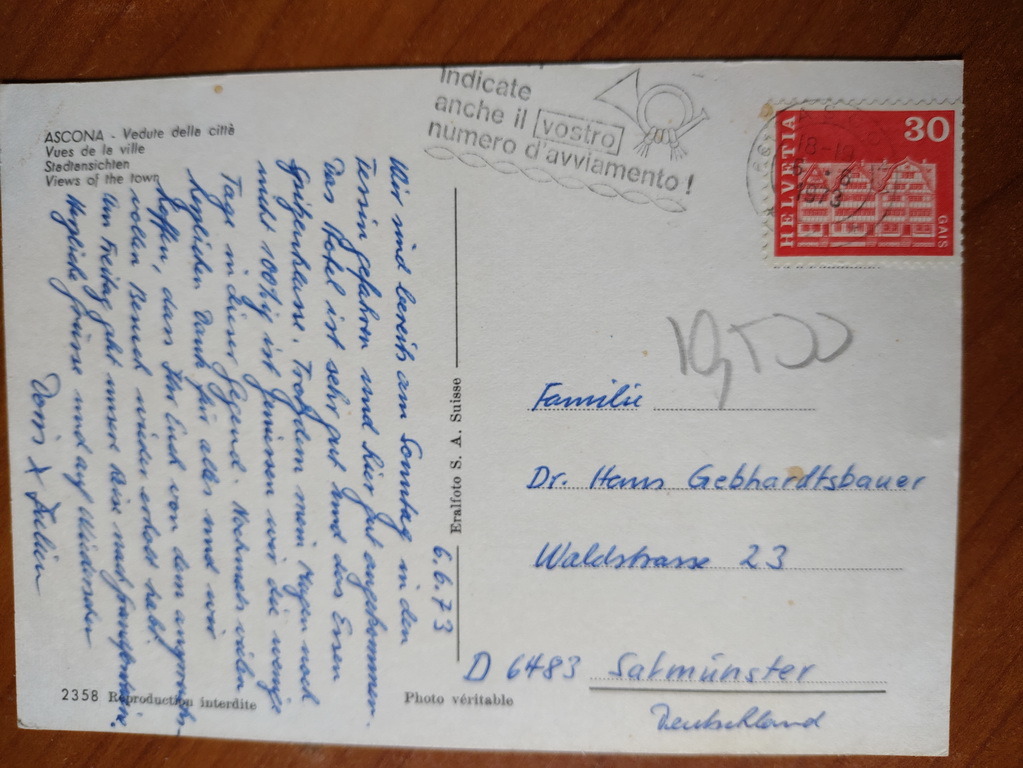 ASCONA - Vedute della città
Vues de la ville
Stadtansichten
Views of the town
Indicate
anche il vostro
numero d'avviamento!
18-19
1973
HELVETIA
30
GAIS
6.6.73
Wir sind bereits am Sonntag in den
Tessin gefahren und hier gut angekommen.
Das Hotel ist sehr gut und das Essen
Spitzenklasse. Trotzdem mein Magen noch
nicht 100%ig ist genießen wir die wenigen
Tage in dieser Gegend. Nochmals vielen
herzlichen Dank für alles und wir
hoffen, dass Ihr Euch von dem
vollen Besuch wieder erholt habt.
Am Freitag geht unsere Reise nach
Herzliche Grüsse und auf Wiedersehen
Doris + Julien
Eralfoto S. A. Suisse
Familie
Dr. Hans Gebhardtsbauer
Waldstrasse 23
D 6483 Salmünster
Deutschland
2358 Reproduction interdite
Photo véritable